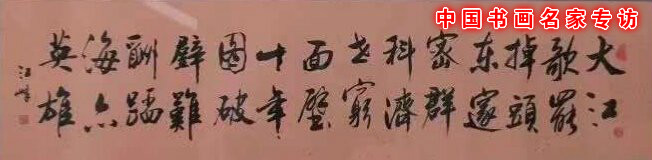 中国书画名家专访
大江
歌罷
掉頭
东邃
密群
科濟
世窮
面壁
十年
图破
壁難
酬蹈
海亦
英雄